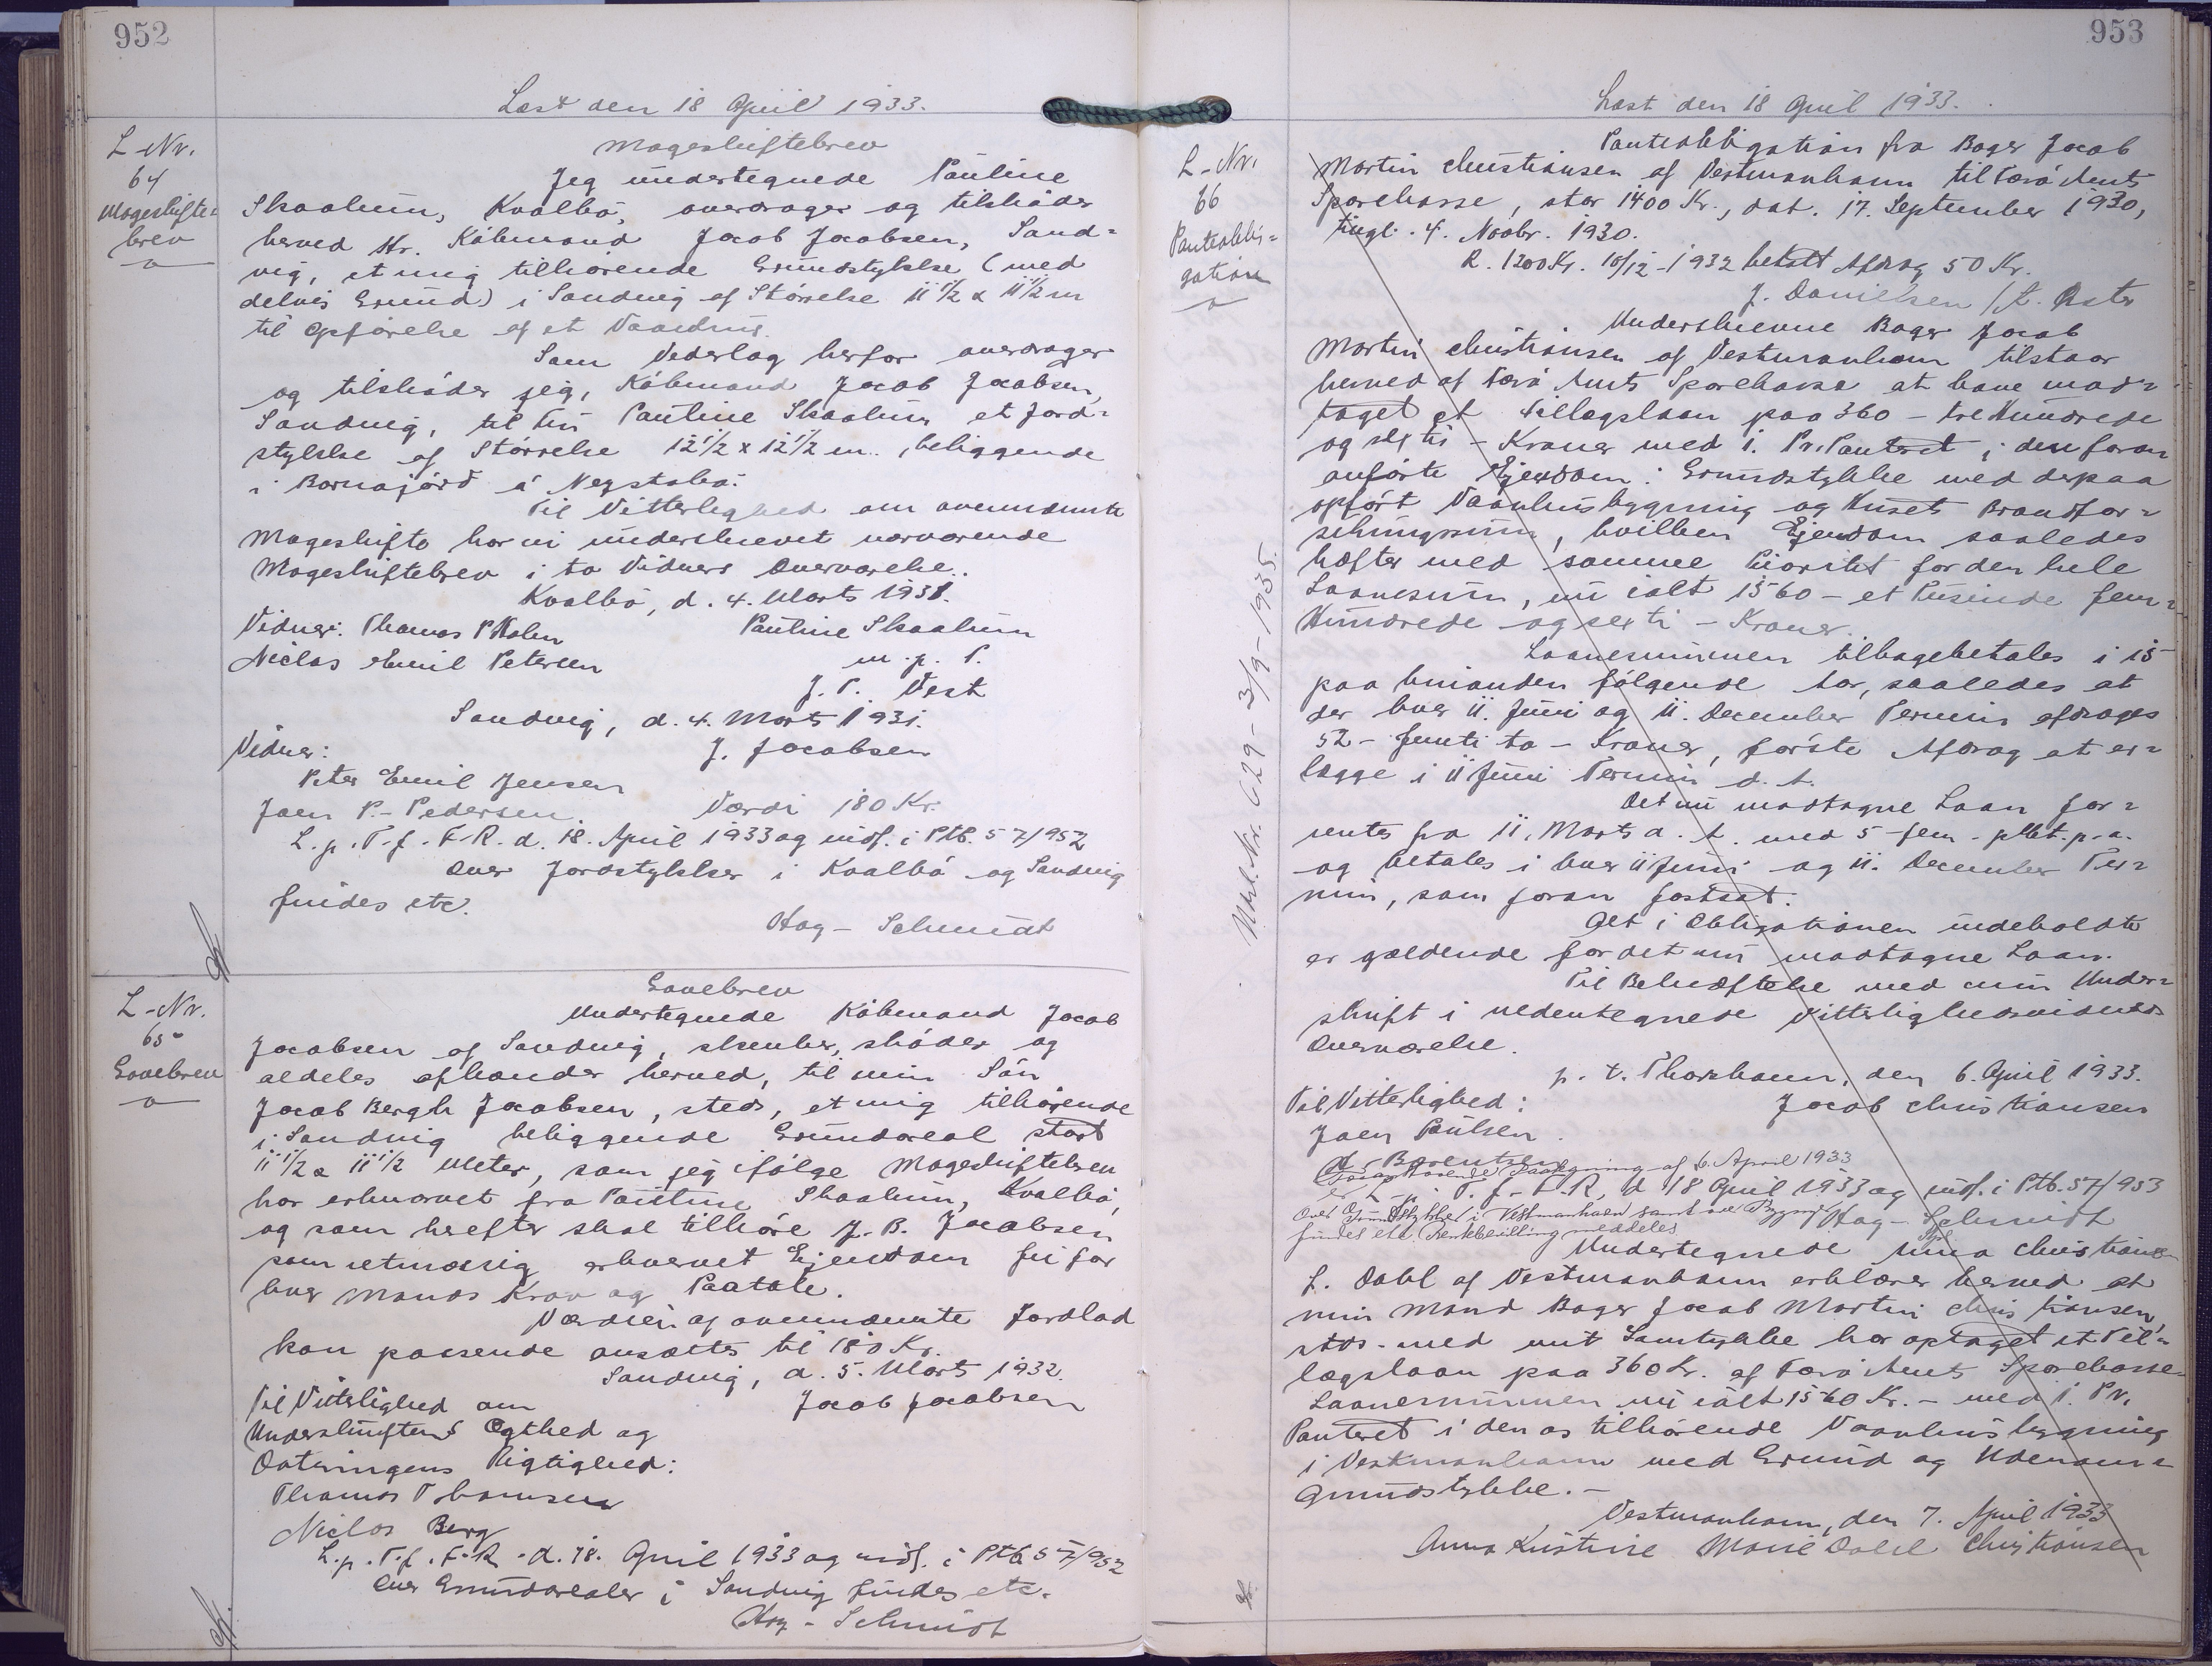 952
Læst den 18 April 1933.
L-Nr.
64
Mageskifte=
brev
Mageskiftebrev
Jeg undertegnede Pauline
Skaalum, Kvalbø, overdrager og tilskøder
herved Hr. Købmand Jacob Jacobsen, Sand=
vig, et mig tilhørende Grundstykke (med
delvis Grund) i Sandvig af Størrelse 11 1/2 x 11 1/2 m
til Opførelse af et Vaaedhus.
Som Vederlag herfor overdrager
og tilskøder jeg, Købmand Jacob Jacobsen,
Sandvig, til Fru Pauline Skaalum et Jord=
stykke af Størrelse 12 1/2 x 12 1/2 m., beliggende
i Bornajørd á Negstabø.
Til Vitterlighed om ovennævnte
Mageskifte har vi underskrevet nærværende
Mageskiftebrev i to Vidners Overværelse.
Kvalbø, d. 4. Marts 1931.
Vidner: Thomas P Holm Pauline Skaalum
Niclas Emil Petersen m. p. P.
J. P. Vest
Sandvig, d. 4. Marts 1931.
Vidner: J. Jacobsen
Peter Emil Jensen
Joen P.- Pedersen. Værdi 180 Kr.
L. p. T. f. F. R. d. 18. April 1933 og indf. i Ptb. 57/952
Over Jordstykker i Kvalbø og Sandvig
findes etc.
Hag- Schmidt
L-Nr.
65
Gavebrev
Gavebrev
Undertegnede Købmand Jacob
Jacobsen af Sandvig, skænker, skøder og
aldeles afhænder herved, til min Søn
Jacob Bergh Jacobsen, steds, et mig tilhørende
i Sandvig beliggende Grundareal stort
11 1/2 x 11 1/2 Meter, som jeg ifølge Mageskiftebrev
har erhvervet fra Pauline Skaalum, Kvalbø,
og som herefter skal tilhøre J. B. Jacobsen
som retmæssig erhvervet Ejendom fri for
hver Mands Krav og Paatale.
Værdien af ovennævnte Jordlod
kan passende ansættes til 180 Kr.
Sandvig, d. 5. Marts 1932.
Til Vitterlighed om Jacob Jacobsen
Underskriftens Ægthed og
Dateringens Rigtighed:
Thomas Thomsen
Niclas Berg
L. p. T. f. F. R. d. 18. April 1933 og indf. i Ptb 57/952
Over Grundarealer i Sandvig findes etc.
Hag - Schmidt
953
Læst den 18 April 1933.
L-Nr.
66
Panteobli=
gation
Udsl. Nr. 629 - 3/9-1935.
Panteobligation fra Bager Jacob
Martin Christiansen af Vestmanhavn til Færø Amts
Sparekasse, stor 1400 Kr., dat. 17. September 1930,
tingl. 4. Novbr. 1930.
R. 1200 Kr. 10/12-1932 betalt Afdrag 50 Kr.
J. Danielsen / K. Øster
Underskrevne Bager Jacob
Martin Christiansen af Vestmanhavn tilstaar
herved af Færø Amts Sparekasse at have mod=
taget et Tillægslaan paa 360 - tre Hundrede
og sexti - Kroner med 1. Pr. Panteret i den foran
anførte Ejendom: Grundstykke med derpaa
opført Vaanhusbygning og Husets Brandfor=
sikringssum, hvilken Ejendom saaledes
hæfter med samme Prioritet for den hele
Laanesum, nu ialt 1560 - et Tusinde fem=
Hundrede og sexti - Kroner.
Laanesummen tilbagebetales i 15
paa hinanden følgende Aar, saaledes at
der hver 11. Juni og 11. December Termin afdrages
52 - femti to - Kroner, første Afdrag at er=
lægge i 11 Juni Termin d. A.
Det nu modtagne Laan for=
rentes fra 11. Marts d. A. med 5 - fem - pCt. p. a.
og betales i hver 11 Juni og 11. December Ter=
min, som foran fastsat.
Alt i Obligationen indeholdte
er gældende for det nu modtagne Laan.
Til Bekræftelse med min Under=
skrift i nedentegnede Vitterlighedsvidners
Overværelse.
p. t. Thorshavn, den 6. April 1933.
Til Vitterlighed: Jacob Christiansen
Joen Poulsen.
A. Bærentsen
Foranstaaende Paategning af 6. April 1933
er L. p. T. f. F. R. d 18 April 1933 og indf. i Ptb. 57/953
Over Grundstykket i Vestmanhavn samt over Bygnge Hag - Schmidt
findes etc. Renkbevilling meddeles
Undertegnede Anna Christiansen
f. Dahl af Vestmanhavn erklærer herved at
min Mand Bager Jacob Martin Christiansen,
stds. med mit Samtykke har optaget et Til=
lægslaan paa 360 Kr. af Færø Amts Sparekasse
Laanesummen nu ialt 1560 Kr. - med 1. Pr.
Panteret i den os tilhørende Vaanhusbygning
i Vestmanhavn med Grund og Udenoms=
Grundstykke. -
Vestmanhavn, den 7. April 1933
Anna Kristine Marie Dahl Christiansen